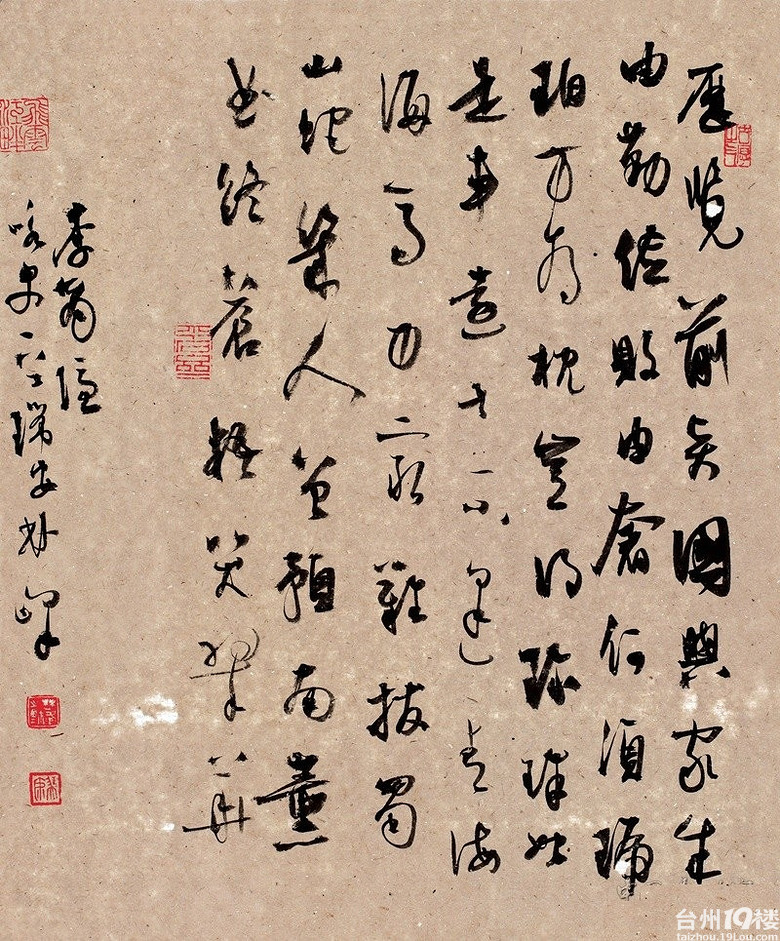 歷覽前賢國與家成
由勤儉敗由奢何須琥
珀方為枕豈得珍珠始
是車運去不逢青海
海馬力窮難拔蜀
山蛇幾人曾預南薰
曲終蒼梧哭翠華
李商隱
咏史一首瑞安林峰
台州19楼
taizhou.19Lou.com